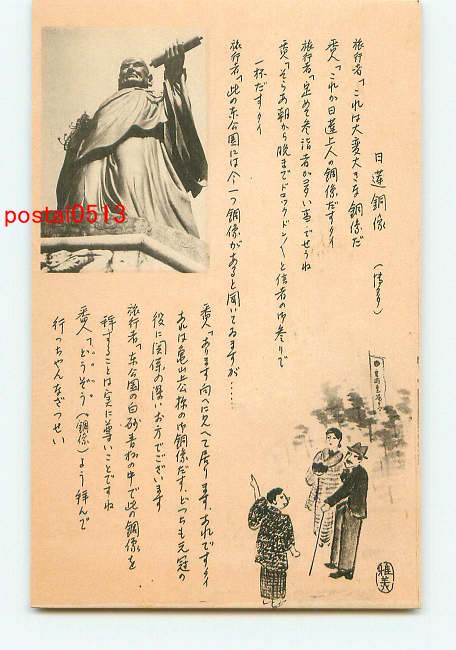 日蓮銅像 (博多)
旅行者「これは大変大きな銅像だ
番人「これか日蓮上人の銅像だすタイ
旅行者「定めて参詣者が多い事でせうね
番人「そらあ朝から晩までドロックドン〱と信者の御参りで
一杯だすタイ
旅行者「此の東公園には今一つ銅像があると聞いてゐますが……
番人「あります向へに見へて居ります、あれですタイ
あれは亀山上公様の御銅像だす、どつちも元冠の
役に関係の深いお方でございます
旅行者「東公園の白砂青松の中で此の銅像を
拝することは実に尊いことですね
番人「どうぞ、(銅像)よう拝んで
行っちゃんなざっせい
雅美
postal0513